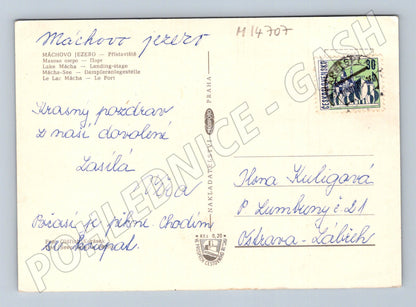 Máchovo jezero
M 14707
MÁCHOVO JEZERO — Přístaviště
Махово озеро — Порт
Lake Mácha — Landing-stage
Mácha-See — Dampferanlegestelle
Le Lac Mácha — Le Port
ČESKOSLOVENSKO
30
Krásný pozdrav
z naší dovolené
Zasílá
Počasí je pěkné chodím
se koupat
NAKLADATELSTVÍ
PRAHA
Kčs 0,20
Ilona Kuligová
P Lumbuny č. 21
Ostrava-Zábřeh
POHLEDNICE - GASH